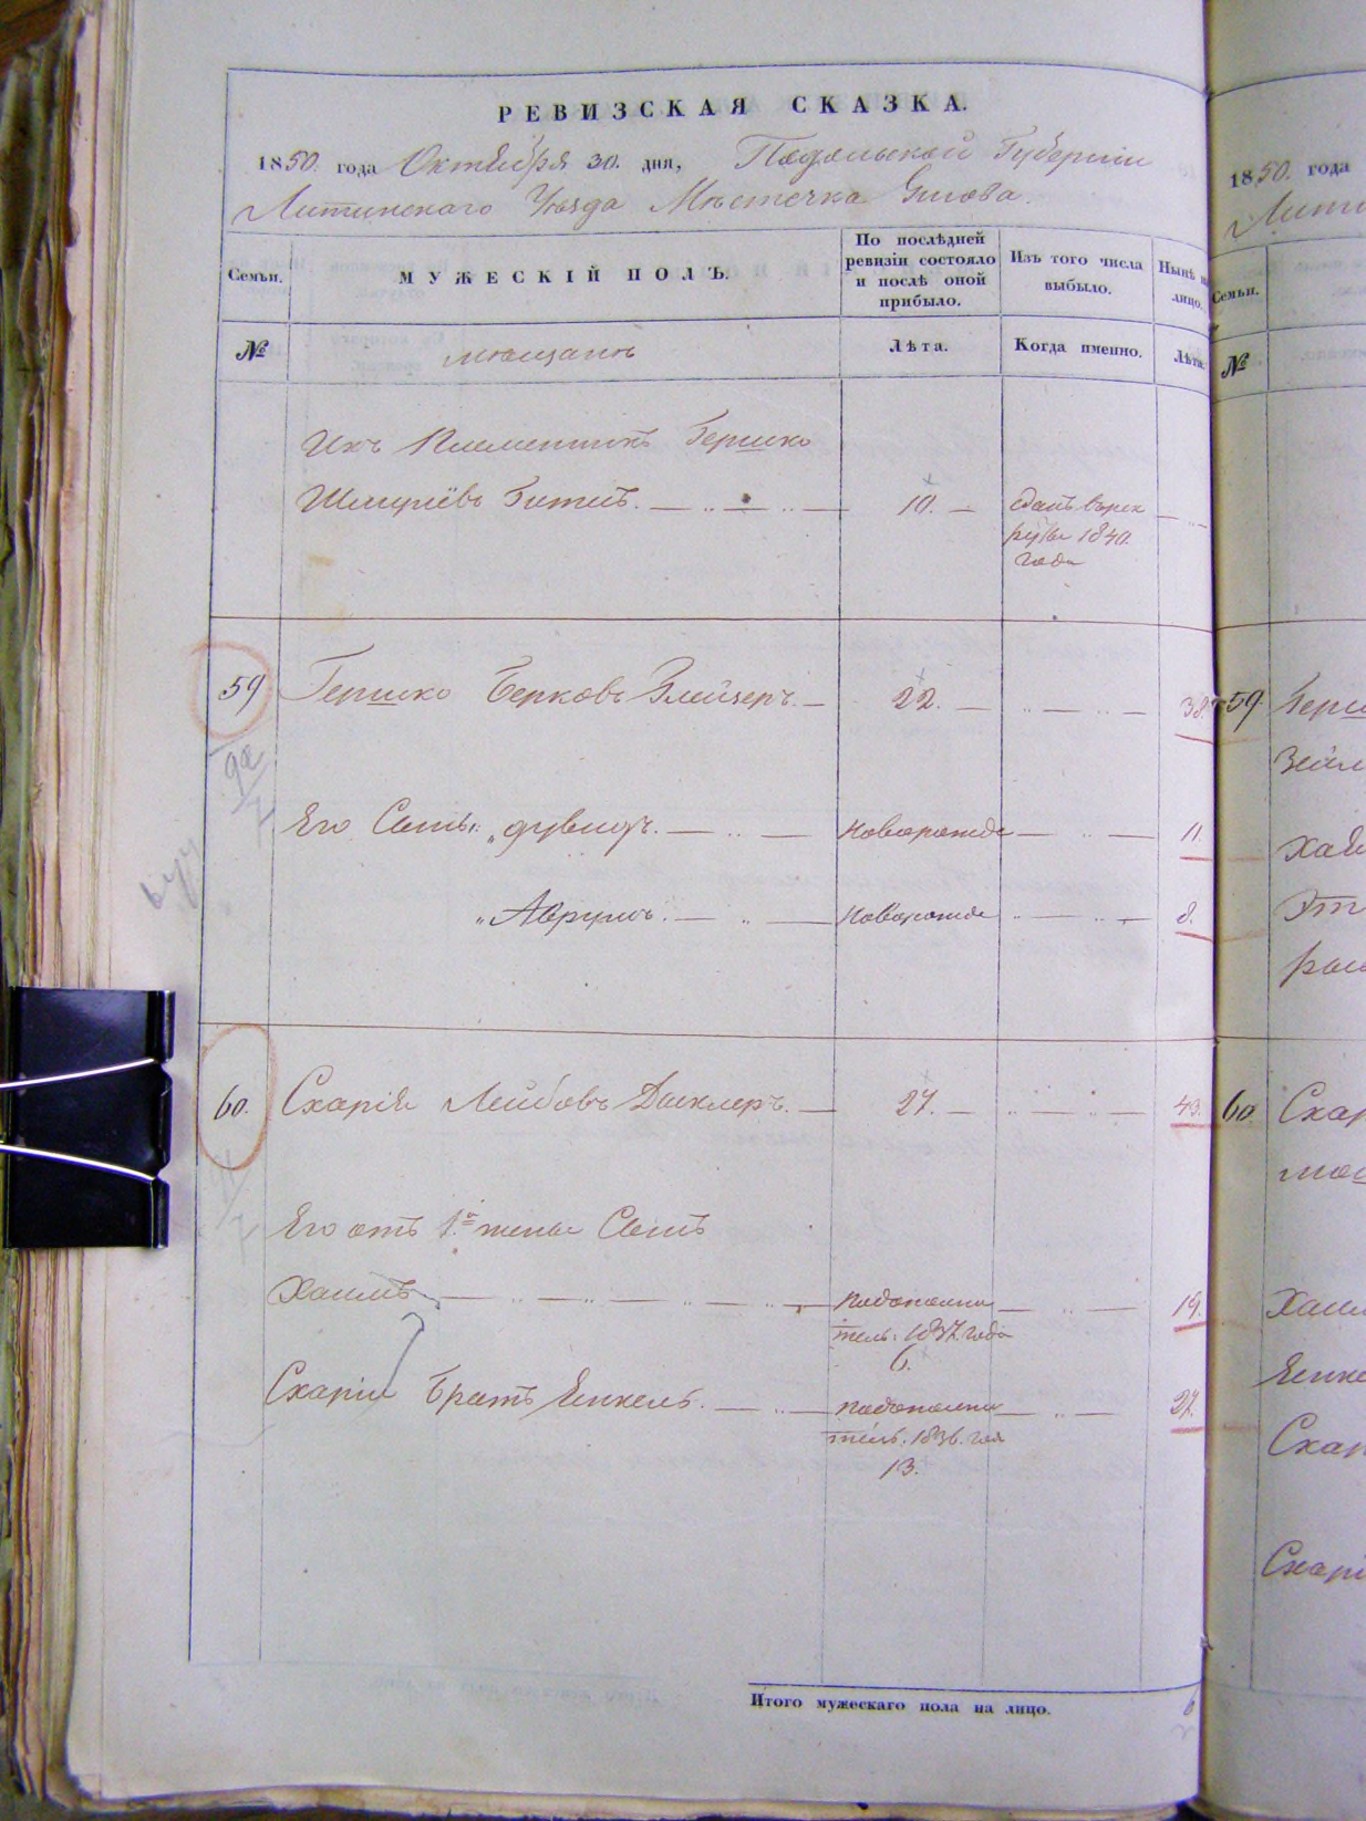 РЕВИЗСКАЯ СКАЗКА.
1850. года Октября 30. дня, Подольской Губернии
Литинскаго Уѣзда Мѣстечка
Семьи.
МУЖЕСКІЙ ПОЛЪ.
По послѣдней ревизіи состояло и послѣ оной прибыло.
Изъ того числа выбыло.
Нынѣ на лицо.
№
мѣщанъ
Лѣта.
Когда именно.
Лѣта.
Ихъ Племенникъ Гершко
10.
сданъ врек
руты 1840.
года
59 Гершко Берковъ 22. 38.
Его Сынъ: Дувидъ. новорожде 11.
Аврумъ. новорожде 8.
60. Схарія Лейбовъ 27. 43.
Его отъ 1й жены Сынъ
Хаимъ пodополни 19.
тель. 1837. года
6.
Схаріи Братъ Янкель. подополни 27.
тель. 1836. год
13.
Итого мужескаго пола на лицо. 6
1850. года
Лити
Семьи.
№
59. Герш
60. Схар
Хаим
Янке
Схар
Схарі